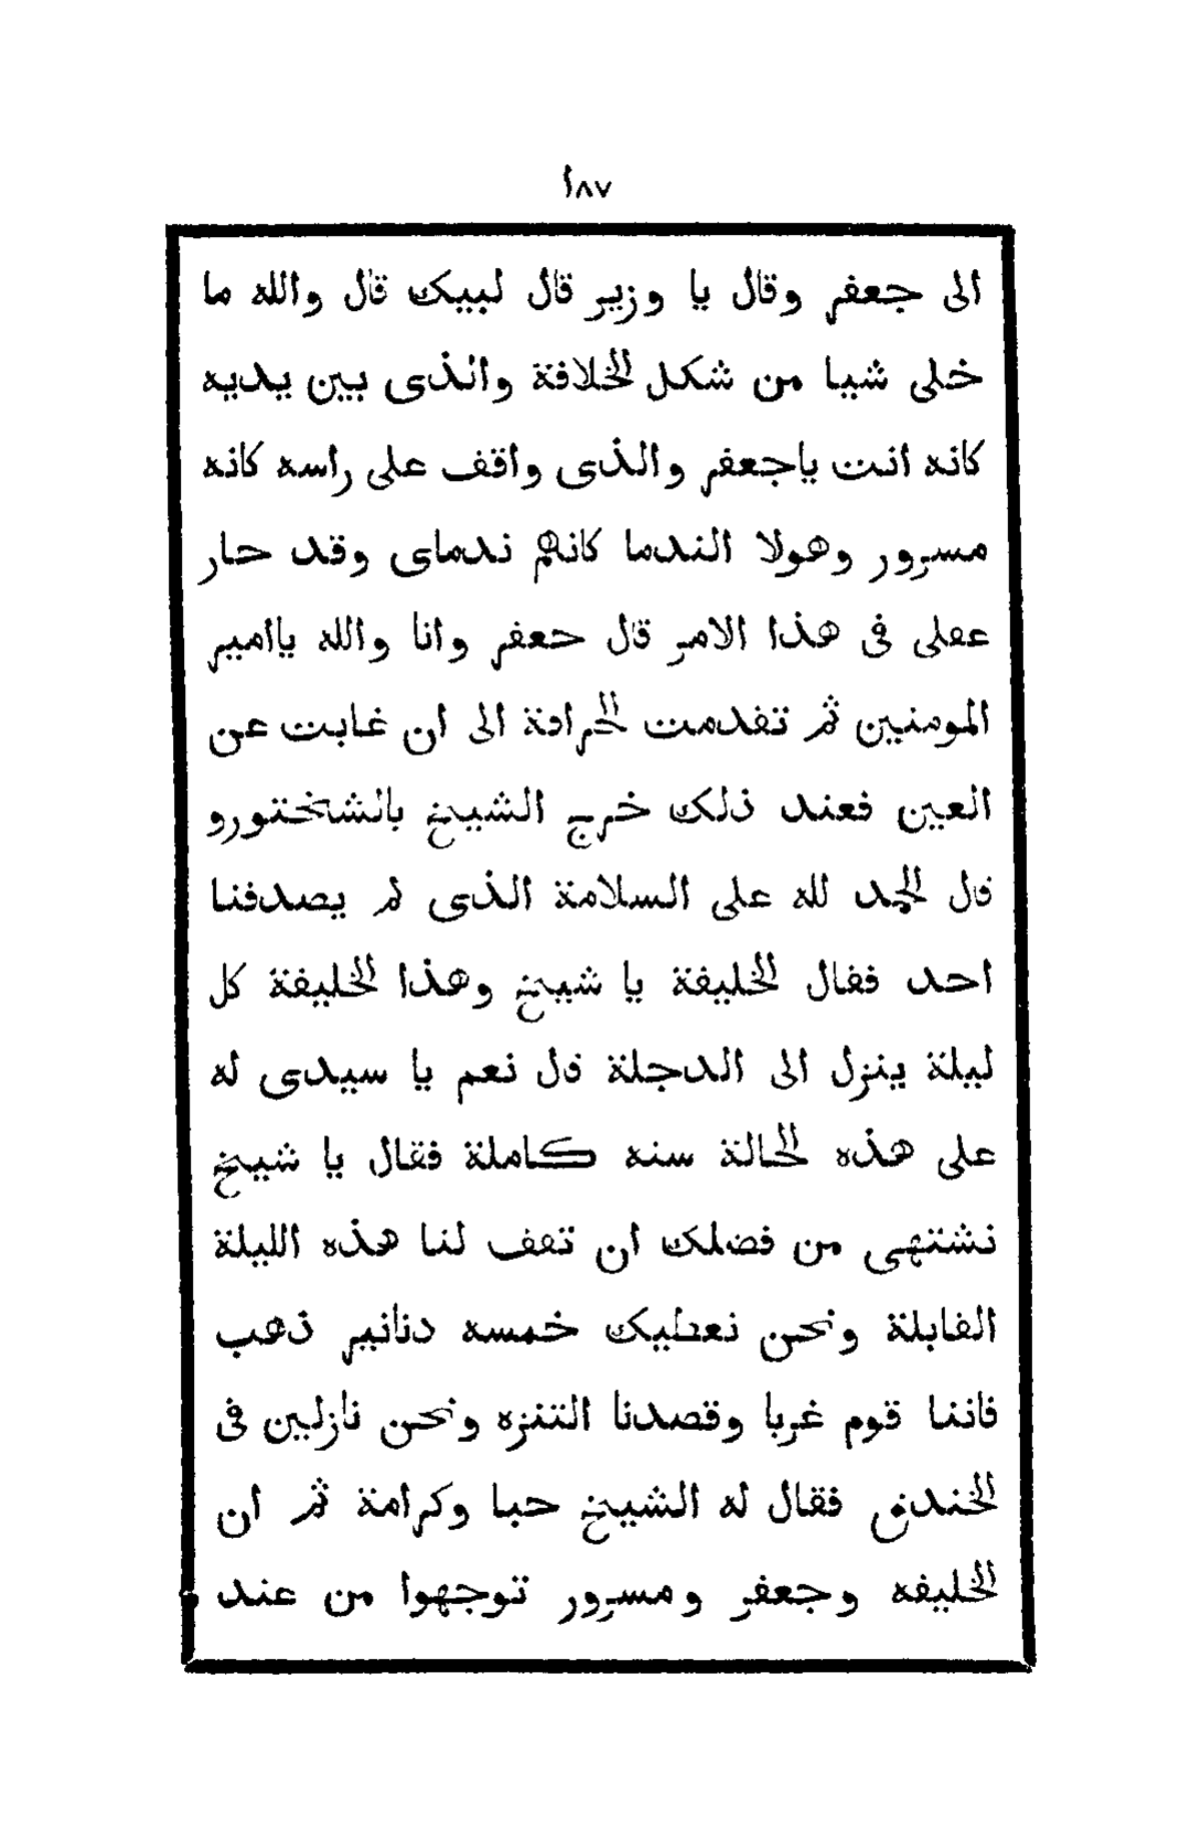 ١٨٧
الى جعفر وقال يا وزير قال لبيك قال والله ما
خلى شيا من شكل الخلافة والذى بين يديه
كانه انت ياجعفر والذى واقف على راسه كانه
مسرور وهولا الندما كانهم ندماى وقد حار
عقلى فى هذا الامر قال جعفر وانا والله ياامير
المومنين ثم تقدمت الحراقة الى ان غابت عن
العين فعند ذلك خرج الشيخ بالشختورو
قال الحمد لله على السلامة الذى لم يصدفنا
احد فقال الخليفة يا شيخ وهذا الخليفة كل
ليلة ينزل الى الدجلة قال نعم يا سيدى له
على هذه الحالة سنه كاملة فقال يا شيخ
نشتهى من فضلك ان تقف لنا هذه الليلة
القابلة ونحن نعطيك خمسه دنانير ذهب
فاننا قوم غربا وقصدنا التنزه ونحن نازلين فى
الخندق فقال له الشيخ حبا وكرامة ثم ان
الخليفه وجعفر ومسرور توجهوا من عند